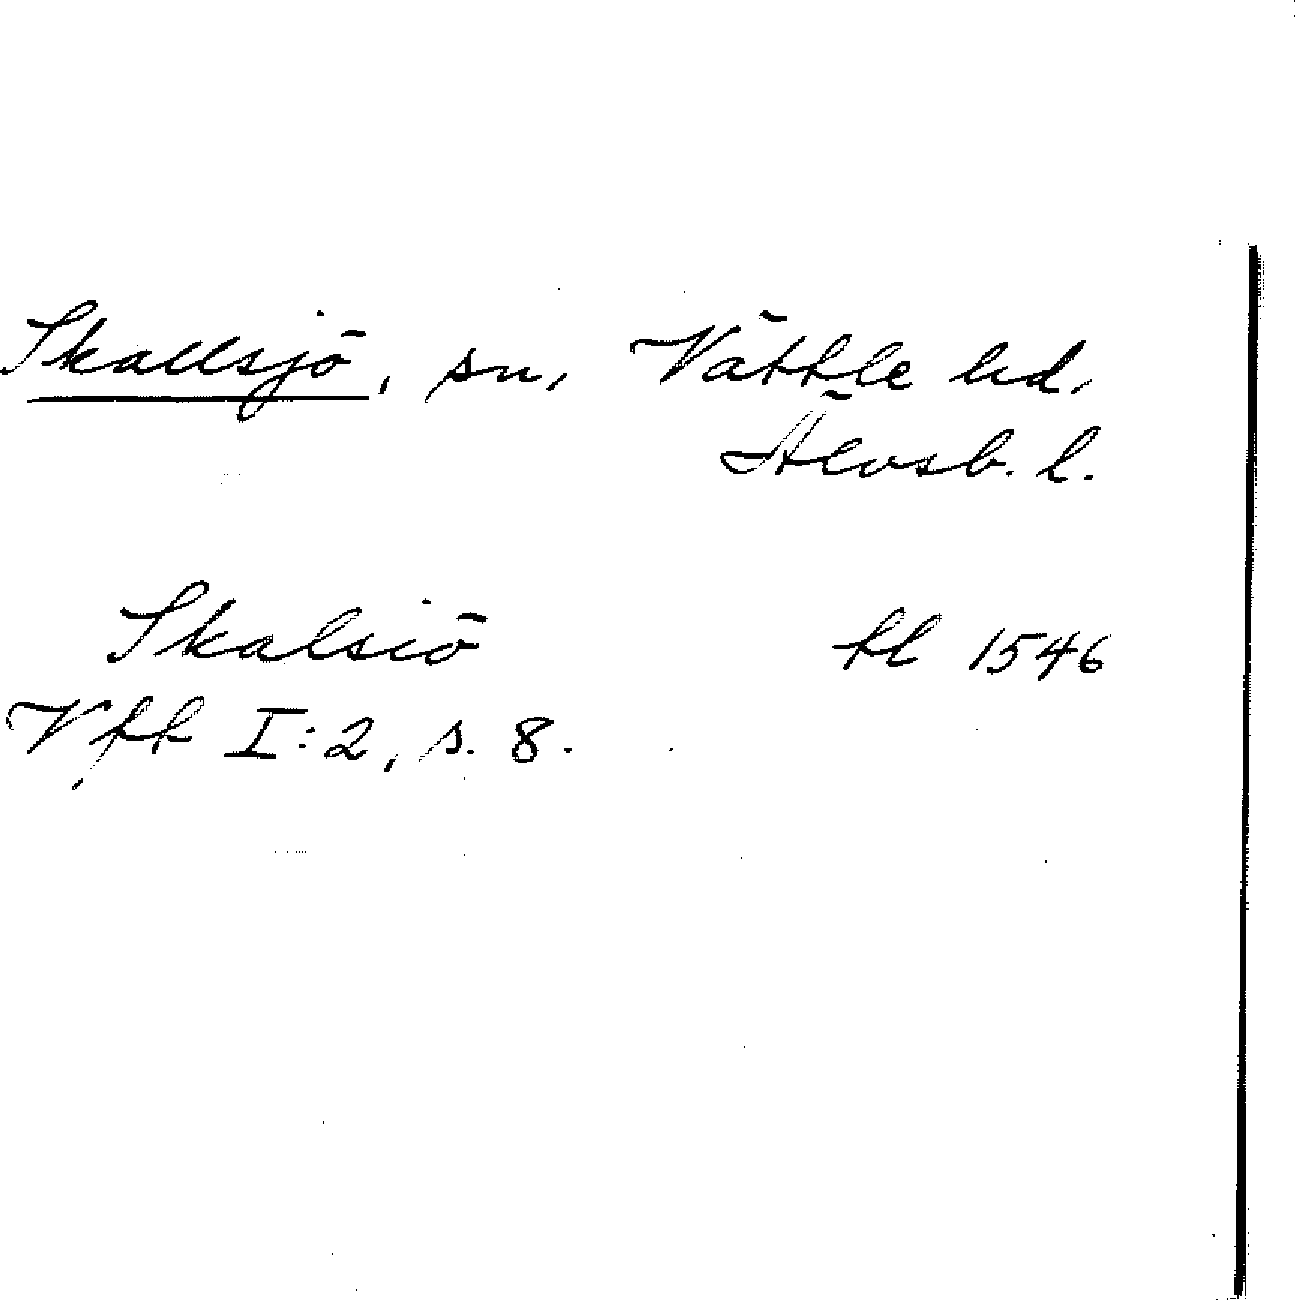 Skallsjö, sn, Vättle hd,
Älvsb. l.
Skalsiö tl 1546
Vff I:2, s. 8.